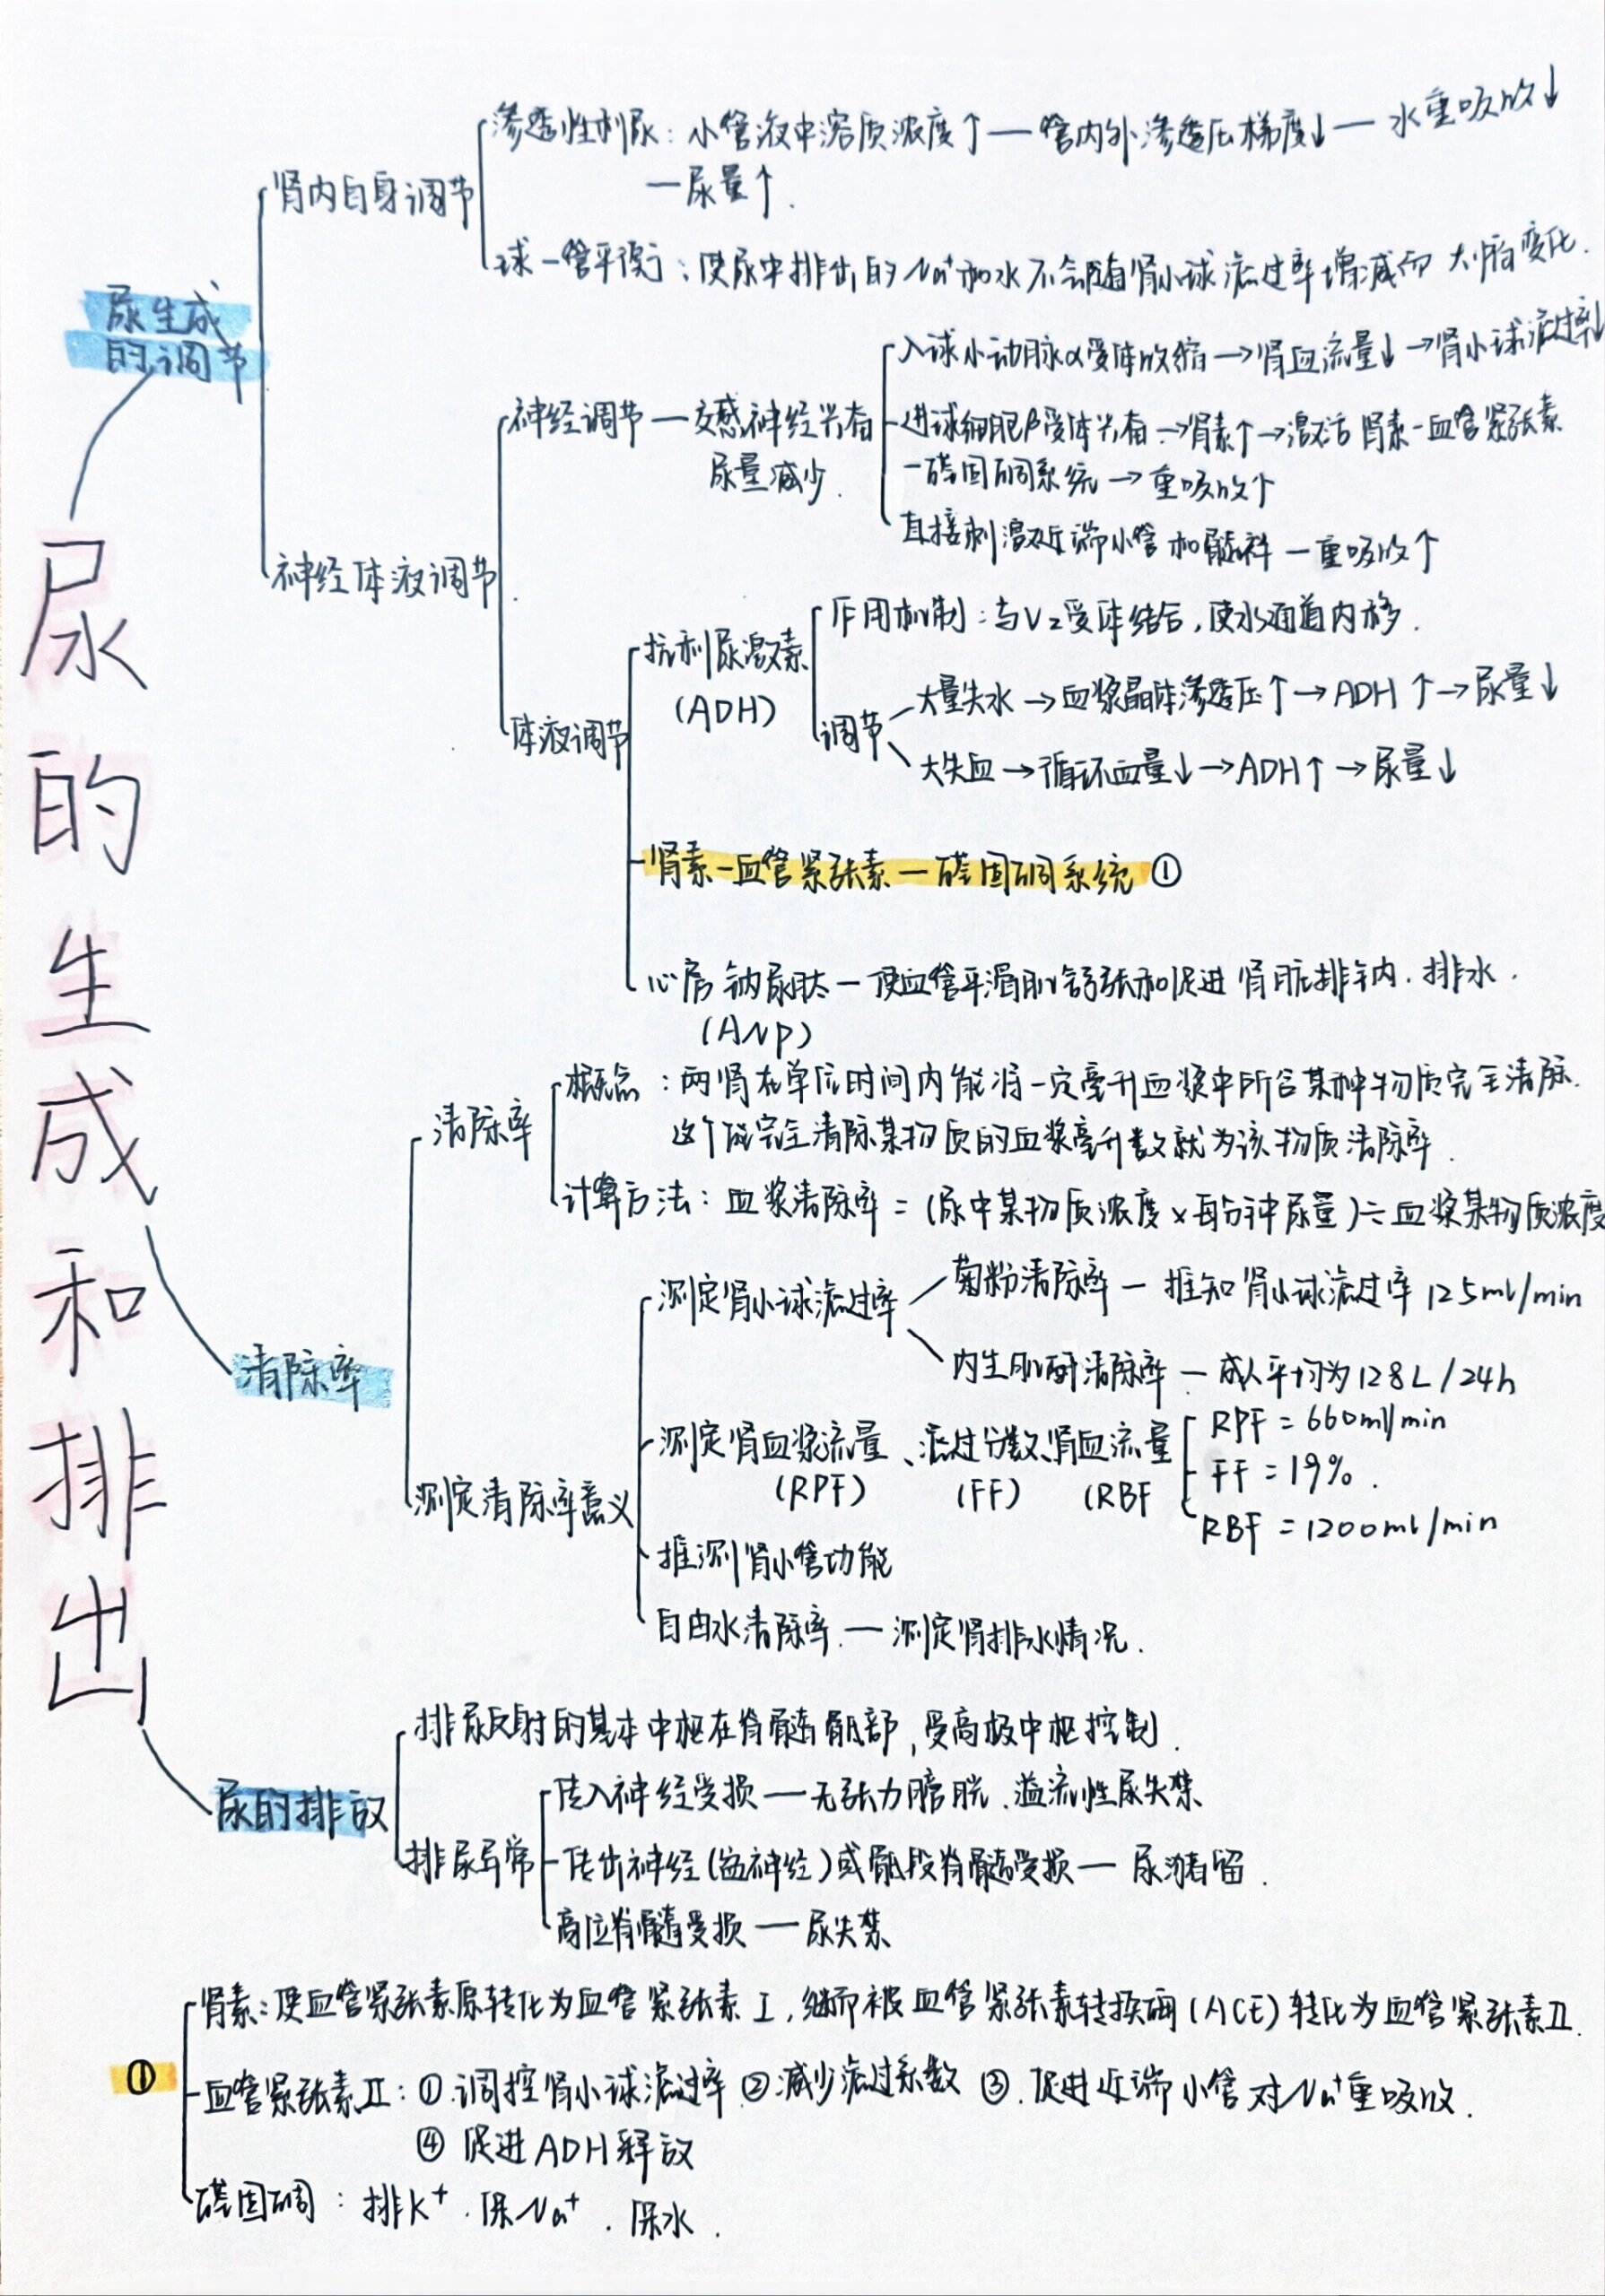 尿的生成和排出
尿生成
的调节
肾内自身调节
渗透性利尿：小管液中溶质浓度↑—管内外渗透压梯度↓—水重吸收↓
—尿量↑.
球-管平衡：使尿中排出的Na⁺和水不会随肾小球滤过率增减而大幅变化.
神经体液调节.
神经调节—交感神经兴奋
尿量减少.
入球小动脉α受体收缩→肾血流量↓→肾小球滤过率↓
进球细胞β受体兴奋→肾素↑→激活肾素-血管紧张素
-醛固酮系统→重吸收↑
直接刺激近端小管和髓袢—重吸收↑
体液调节
抗利尿激素
(ADH)
作用机制：与V₂受体结合,使水通道内移.
调节
大量失水→血浆晶体渗透压↑→ADH↑→尿量↓
大失血→循环血量↓→ADH↑→尿量↓
肾素-血管紧张素-醛固酮系统①
心房钠尿肽—使血管平滑肌舒张和促进肾脏排钠.排水.
(ANP)
清除率
清除率
概念：两肾在单位时间内能将一定毫升血浆中所含某种物质完全清除.
这个能完全清除某物质的血浆毫升数就为该物质清除率.
计算方法：血浆清除率=(尿中某物质浓度×每分钟尿量)÷血浆某物质浓度
测定清除率意义
测定肾小球滤过率
菊粉清除率—推知肾小球滤过率125ml/min
内生肌酐清除率—成人平均为128L/24h
测定肾血浆流量、滤过分数、肾血流量
(RPF) (FF) (RBF
RPF=660ml/min
FF=19%.
RBF=1200ml/min
推测肾小管功能
自由水清除率.—测定肾排水情况.
尿的排放
排尿反射的基本中枢在脊髓骶部,受高级中枢控制.
排尿异常
传入神经受损—无张力膀胱、溢流性尿失禁
传出神经(盆神经)或骶段脊髓受损—尿潴留.
高位脊髓受损—尿失禁
①
肾素：使血管紧张素原转化为血管紧张素I,继而被血管紧张素转换酶(ACE)转化为血管紧张素II.
血管紧张素II：①.调控肾小球滤过率②减少滤过系数③.促进近端小管对Na⁺重吸收.
④促进ADH释放
醛固酮：排K⁺.保Na⁺.保水.